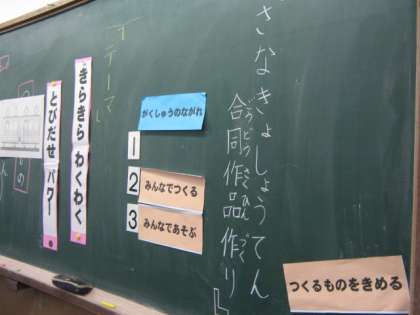 さなきょしょうてん
合同作品作り
ごうどうさくひんづくり
テーマ
がくしゅうのながれ
1
2 みんなでつくる
3 みんなであそぶ
つくるものをきめる
きらきら わくわく
とびだせ パワー